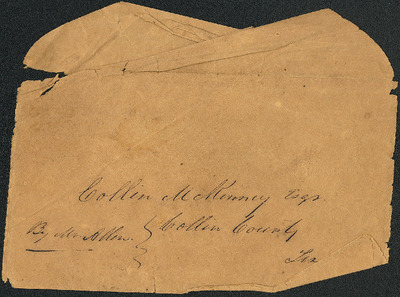 Collin McKinney Esqr.
By Mr. Allen } Collin County
Tex